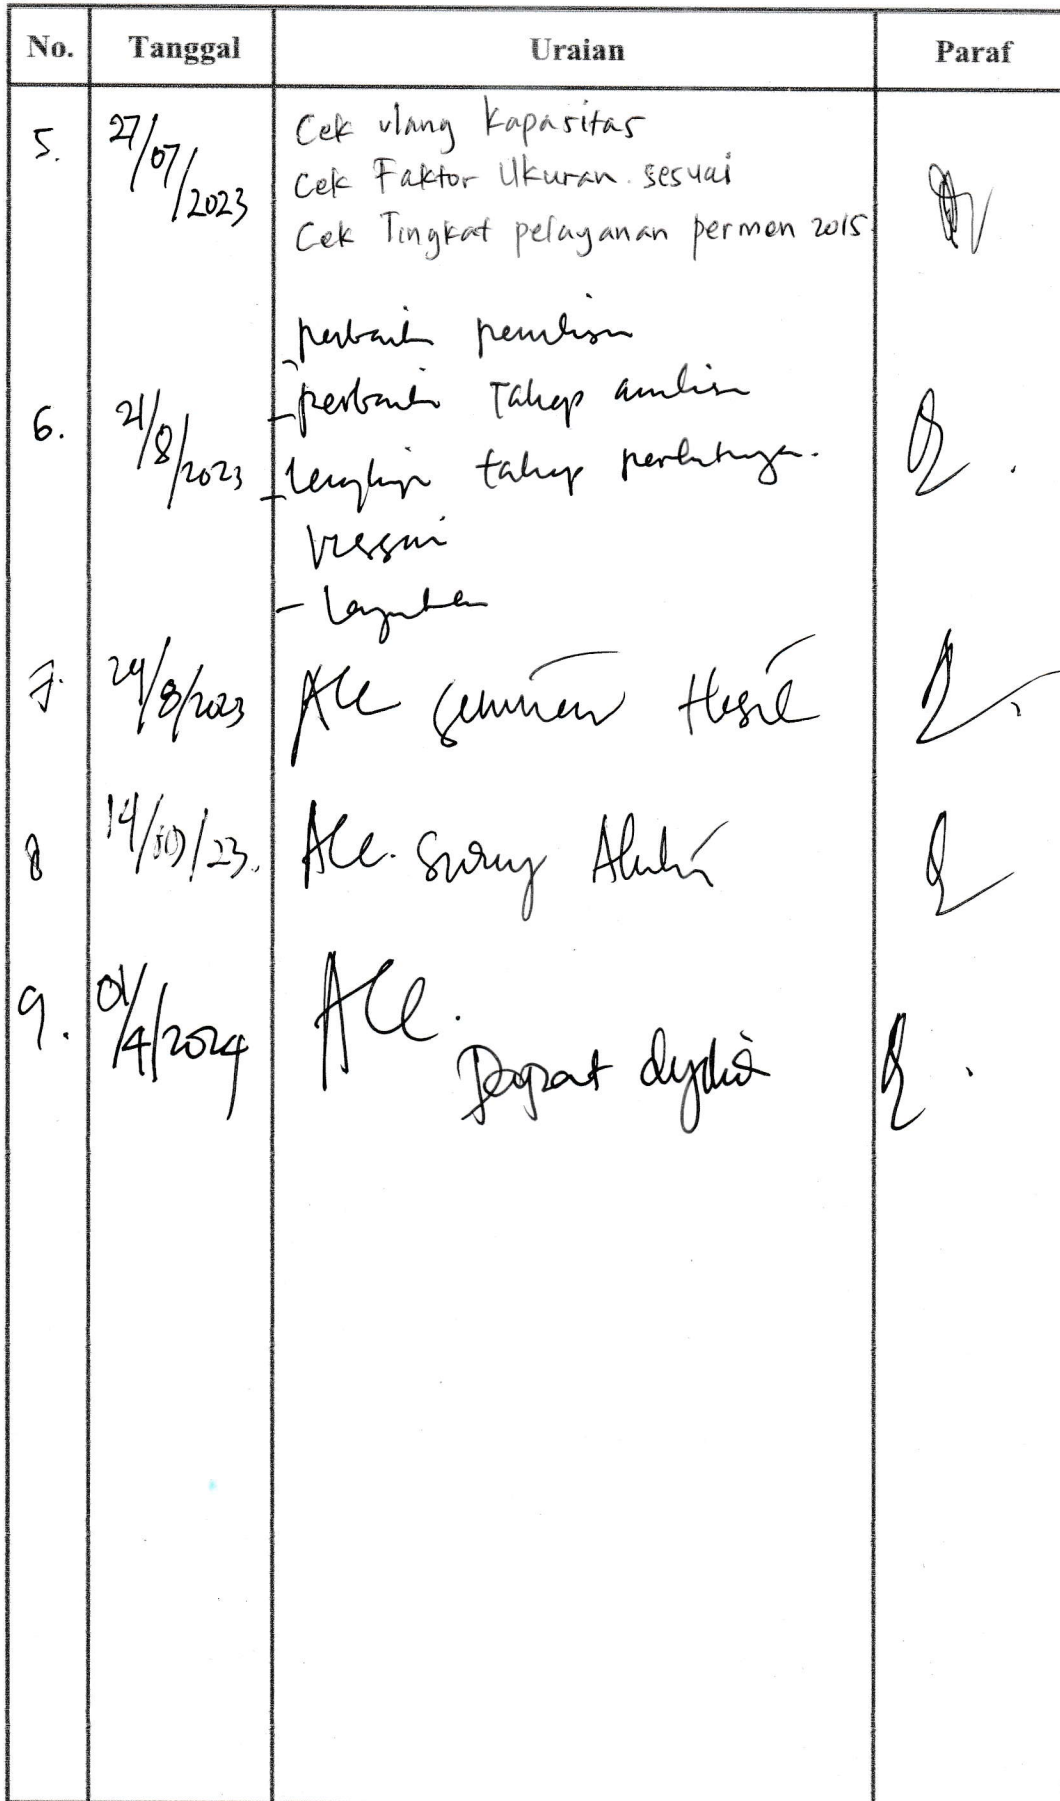 No. Tanggal Uraian Paraf
5. 27/07/2023 Cek ulang kapasitas
Cek Faktor Ukuran. sesuai
Cek Tingkat pelayanan permen 2015
perbaiki penulisan
6. 21/8/2023 - perbaiki Tahap analisa
- lengkapi tahap
-
7. 24/8/2023 Acc seminar Hasil
8 14/09/23. Acc. Sidang Akhir
9. 01/4/2024 Acc.
Dapat dijilid